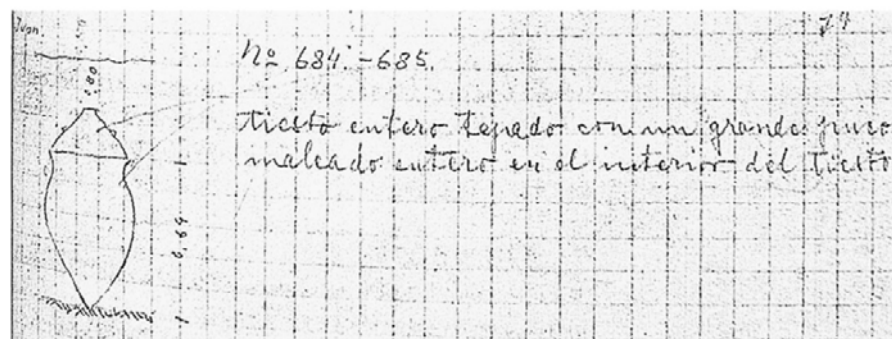 Nº 684.-685.
tiesto entero tapado con un grande puco
maleado entero en el interior del tiesto
0,64